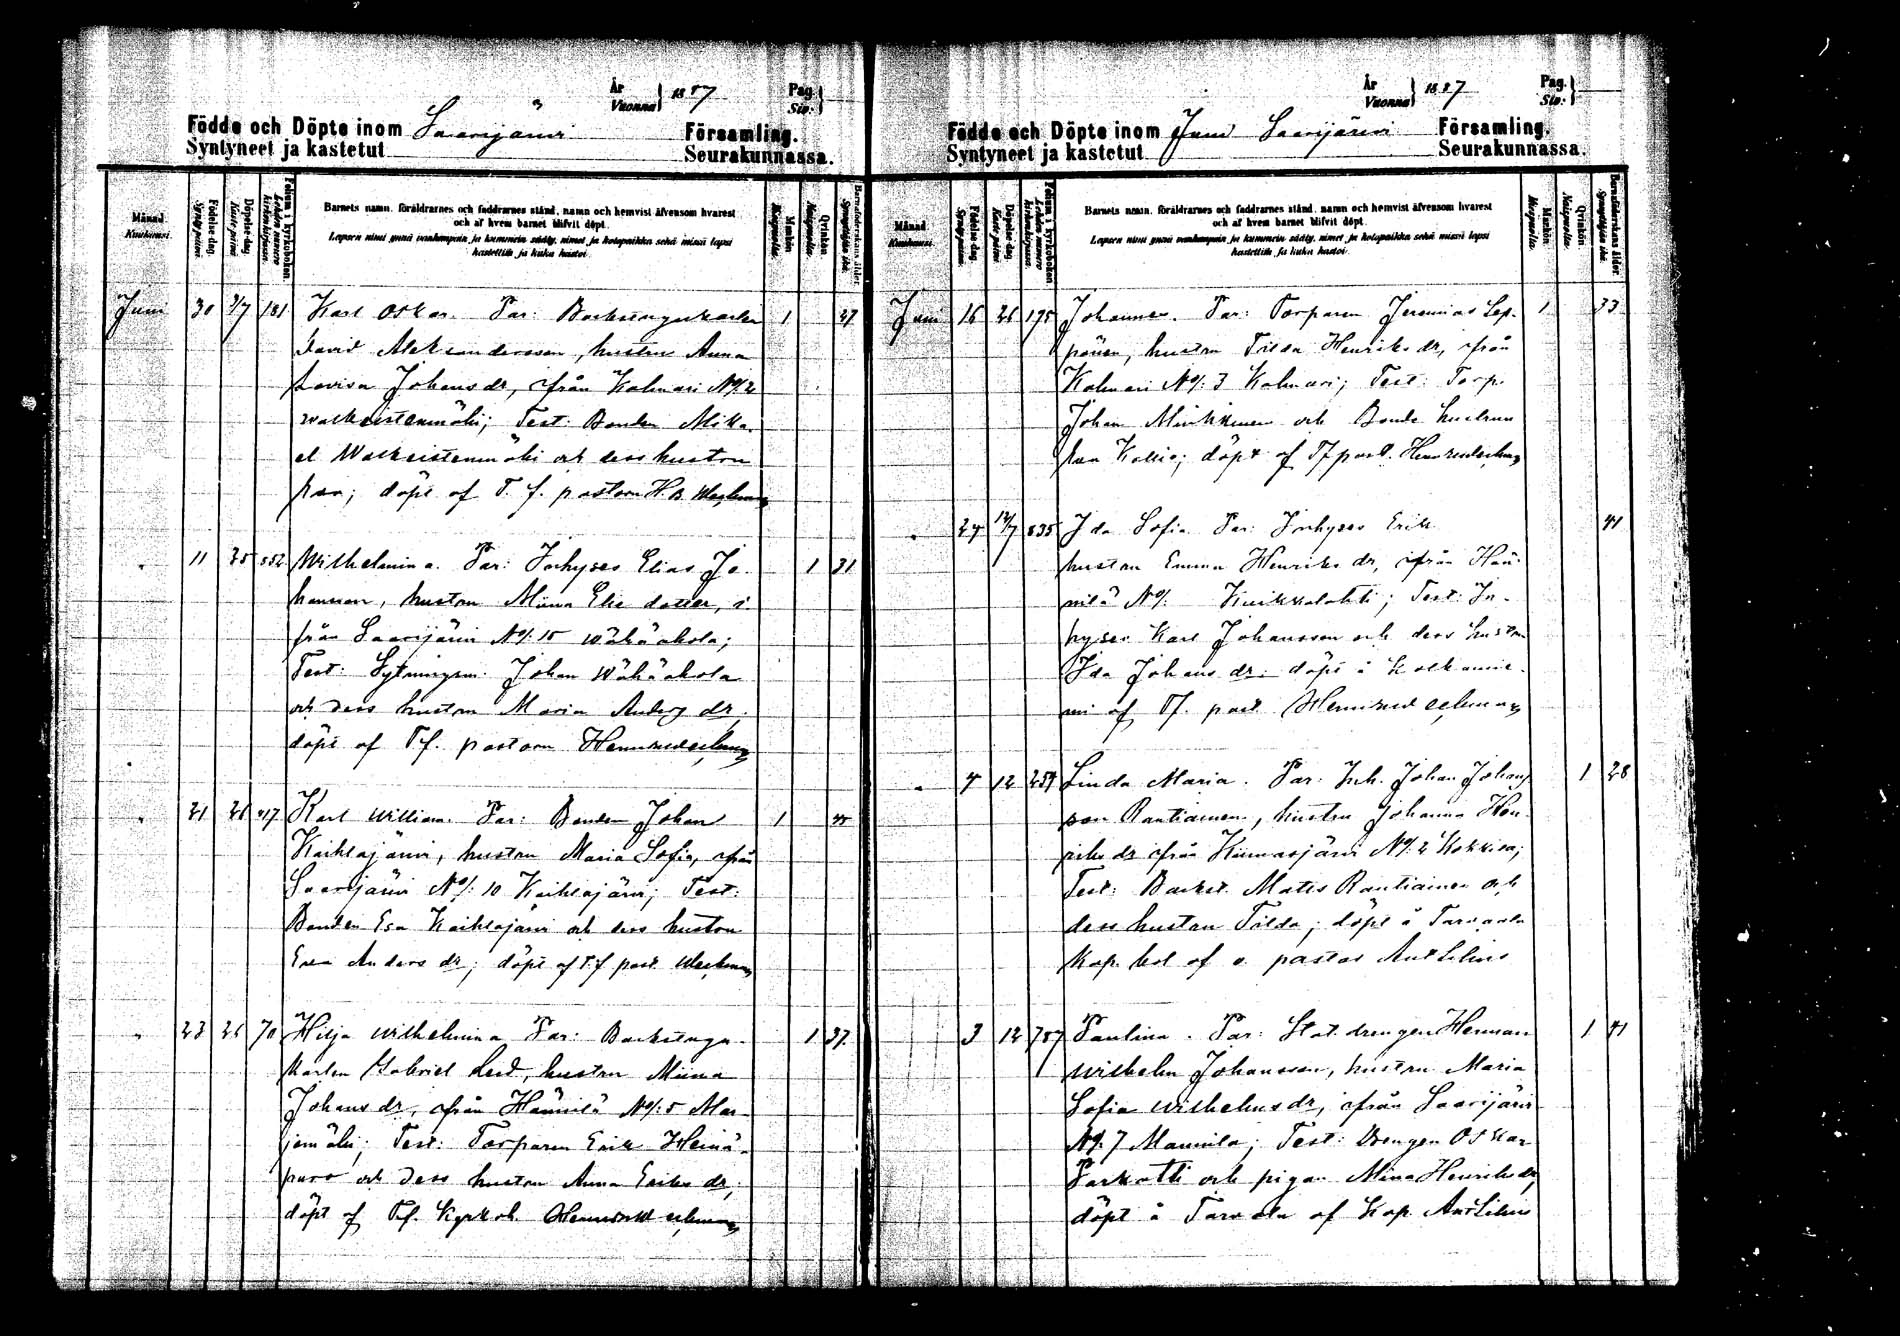 År
Vuonna } 1887
Pag.
Siv. }
Födde och Döpte inom Saarijärvi Församling.
Syntyneet ja kastetut Seurakunnassa.
Månad.
Kuukausi.
Födelse-dag.
Syntymä-päivä.
Döpelse-dag.
Kaste-päivä
Folium i kyrkoboken.
Lehden numero kirkonkirjassa.
Barnets namn, föräldrarnes och faddrarnes stånd, namn och hemvist äfvensom hvarest
och af hvem barnet blifvit döpt.
Lapsen nimi ynnä vanhempain ja kummein sääty, nimet ja kotopaikka sekä missä lapsi
kastettiin ja kuka kastoi.
Mankön.
Miespuolta.
Qvinkön.
Naispuolta.
Barnaföderskans ålder.
Synnyttäjän ikä.
Juni 30 3/7 181 Karl Oskar. Par: Backstugukarlen 1 27
David Aleksandersson, hustru Anna
Lovisa Johansdr, ifrån Kolmari No/: 2
walkeistenmäki; Test: Bonden Mika-
el Walkeistenmäki och dess hustru
; döpt af T. f. pastorn H. B.
" 11 25 552 Wilhelmina. Par: Inhyses Elias Jo- 1 31
hansson, hustru Miina Elie dotter, i-
från Saarijärvi No/: 15 wähäahola;
Test: Sytningsm. Johan Wähäahola
och dess hustru Maria Anders dr,
döpt af Tf. pastorn
" 21 26 417 Karl William. Par: Bonden Johan 1 45
Kaihlajärvi, hustru Maria Sofia, ifrån
Saarijärvi No/: 10 Kaihlajärvi; Test:
Bonden Esa Kaihlajärvi och dess hustru
Eva Anders dr; döpt af T. f. past.
" 23 26 70 Hilja Wilhelmina Par: Backstugu- 1 37
karlen Gabriel Leid, hustru Miina
Johans dr, ifrån Hännilä No/: 5 Mar-
jomäki; Test: Torparen Erik Heinä-
puro och dess hustru Anna Eriks dr,
döpt af Tf. Kyrkoh.
År
Vuonna } 1887
Pag.
Siv. }
Födde och Döpte inom Juni Saarijärvi Församling.
Syntyneet ja kastetut Seurakunnassa.
Månad
Kuukausi.
Födelse-dag.
Syntymä-päivä.
Döpelse-dag.
Kaste-päivä
Folium i kyrkoboken.
Lehden numero kirkonkirjassa.
Barnets namn, föräldrarnes och faddrarnes stånd, namn och hemvist äfvensom hvarest
och af hvem barnet blifvit döpt.
Lapsen nimi ynnä vanhempain ja kummein sääty, nimet ja kotopaikka sekä missä lapsi
kastettiin ja kuka kastoi.
Mankön.
Miespuolta.
Qvinkön.
Naispuolta.
Barnaföderskans ålder.
Synnyttäjän ikä.
Juni 16 26 175 Johannes. Par: Torparen Jeremias Lep- 1 33
pänen, hustru Tilda Henriks dr, ifrån
Kolmari No/: 3 Kolmari; Test: Torp.
Johan Minkkinen och Bonde hustrun
Kollio; döpt af Tf past.
" 24 12/7 535 Ida Sofia Par: Inhyses Erik 41
hustru Emma Henriks dr, ifrån Hän-
nilä No/: Kuikkalahti; Test: In-
hyses Karl Johansson och dess hustru
Ida Johans dr. döpt å Kolkannie-
mi af Tf. past.
" 4 12 257 Linda Maria. Par: Inh. Johan Johans- 1 28
son Rantiainen, hustru Johanna Hen-
riks dr ifrån Kiimasjärvi No/: 2 Kokkila;
Test: Backst. Matts Rantiainen och
dess hustru Tilda; döpt å Tarvaala
Kap. bol af v. pastor Aut Lilius
3 12 787 Paulina. Par: Stat drengen Herman 1 41
Wilhelm Johansson, hustru Maria
Sofia Wilhelmsdr, ifrån Saarijärvi
No/: 7 Mannila; Test: Drengen Oskar
Parkatti och pigan Miina Henriks dr,
döpt å Tarvala af Kap. Aut Lilius